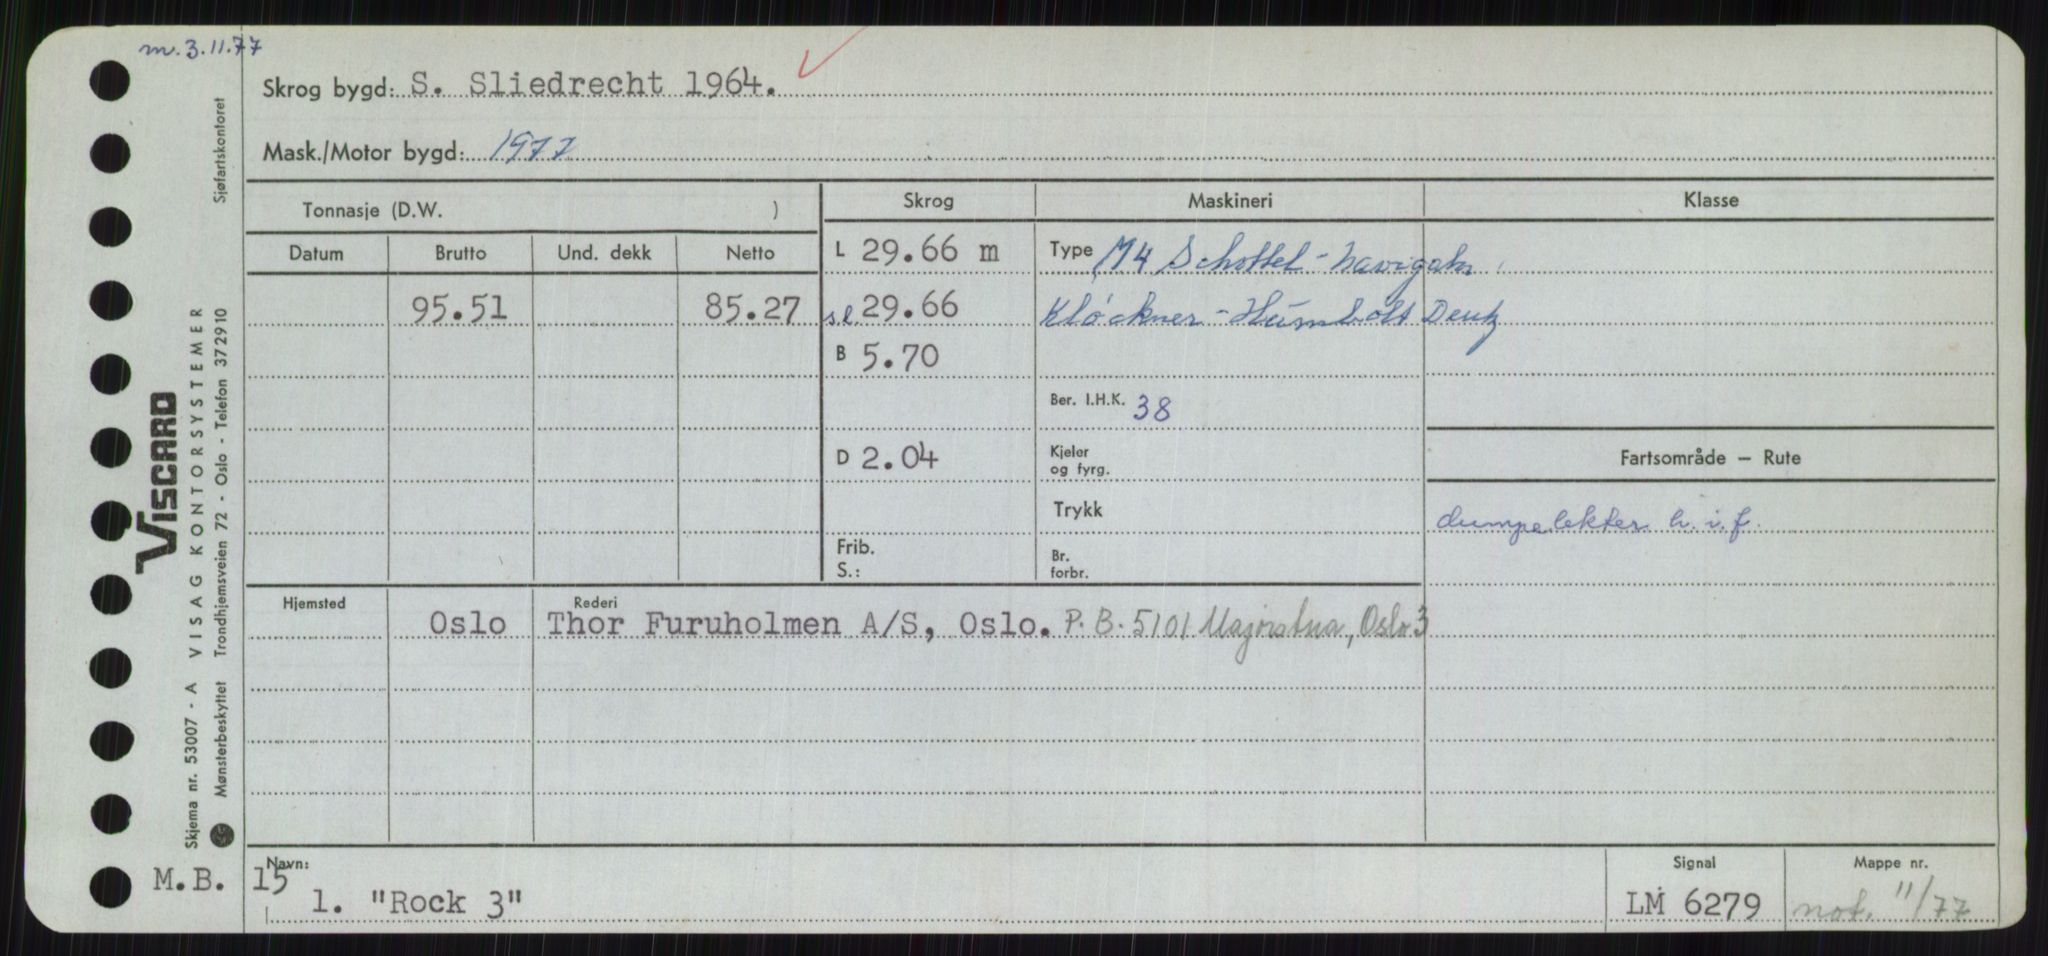 m. 3.11.77
Skrog bygd: S. Sliedrecht 1964.
Mask./Motor bygd: 1977
Tonnasje (D.W. )
Skrog
Maskineri
Klasse
Datum Brutto Und. dekk Netto
L 29.66 m
Type M4 Schottel - Navigator
95.51 85.27
sl 29.66
Klöckner - Humbolt Deutz
B 5.70
Ber. I.H.K. 38
D 2.04
Kjeler
og fyrg.
Fartsområde — Rute
Trykk
dumpelekter h.i.f.
Frib.
S.:
Br.
forbr.
Hjemsted
Oslo
Rederi
Thor Furuholmen A/S, Oslo. P.B. 5101 Majorstua, Oslo 3
M.B. 15
Navn:
1. "Rock 3"
Signal
LM 6279
Mappe nr.
not. 11/77
Sjøfartskontoret
VISCARD
VISAG KONTORSYSTEMER
Trondhjemsveien 72 - Oslo - Telefon 372910
Skjema nr. 53007 - A
Mønsterbeskyttet